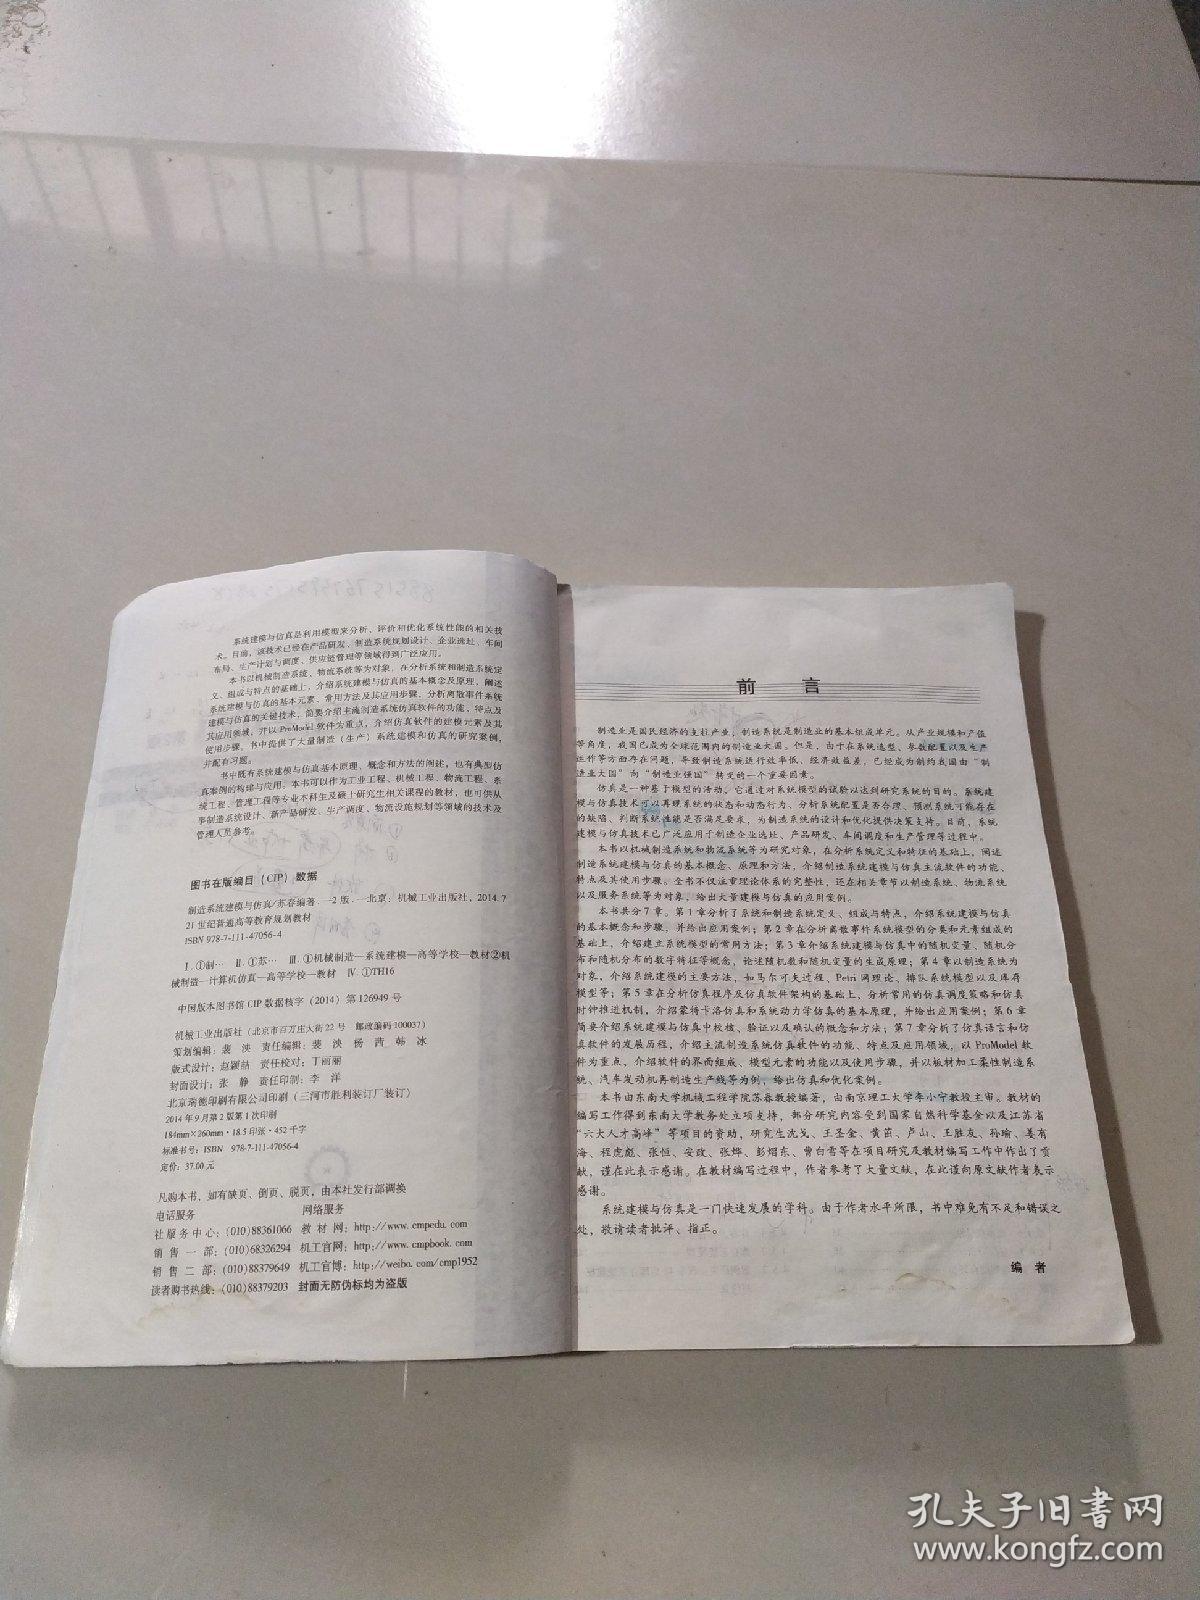 系统建模与仿真是利用模型来分析、评价和优化系统性能的相关技
术。目前，该技术已经在产品研发、制造系统规划设计、企业选址、车间
布局、生产计划与调度、供应链管理等领域得到广泛应用。
本书以机械制造系统、物流系统等为对象，在分析系统和制造系统定
义、组成与特点的基础上，介绍系统建模与仿真的基本概念及原理，阐述
系统建模与仿真的基本元素、常用方法及其应用步骤，分析离散事件系统
建模与仿真的关键技术，简要介绍主流制造系统仿真软件的功能、特点及
其应用领域，并以ProModel软件为重点，介绍仿真软件的建模元素及其
使用步骤。书中提供了大量制造（生产）系统建模和仿真的研究案例，
并配有习题。
书中既有系统建模与仿真基本原理、概念和方法的阐述，也有典型仿
真案例的构建与应用。本书可以作为工业工程、机械工程、物流工程、系
统工程、管理工程等专业本科生及硕士研究生相关课程的教材，也可供从
事制造系统设计、新产品研发、生产调度、物流设施规划等领域的技术及
管理人员参考。
图书在版编目（CIP）数据
制造系统建模与仿真/苏春编著.—2版.—北京：机械工业出版社，2014.7
21世纪普通高等教育规划教材
ISBN 978-7-111-47056-4
Ⅰ.①制… Ⅱ.①苏… Ⅲ.①机械制造—系统建模—高等学校—教材②机
械制造—计算机仿真—高等学校—教材 Ⅳ.①TH16
中国版本图书馆CIP数据核字（2014）第126949号
机械工业出版社（北京市百万庄大街22号 邮政编码100037）
策划编辑：裴 泱 责任编辑：裴 泱 杨 茜 韩 冰
版式设计：赵颖喆 责任校对：丁丽丽
封面设计：张 静 责任印制：李 洋
北京瑞德印刷有限公司印刷（三河市胜利装订厂装订）
2014年9月第2版第1次印刷
184mm×260mm·18.5印张·452千字
标准书号：ISBN 978-7-111-47056-4
定价：37.00元
凡购本书，如有缺页、倒页、脱页，由本社发行部调换
电话服务 网络服务
社服务中心：(010)88361066 教材网：http://www.cmpedu.com
销售一部：(010)68326294 机工官网：http://www.cmpbook.com
销售二部：(010)88379649 机工官博：http://weibo.com/cmp1952
读者购书热线：(010)88379203 封面无防伪标均为盗版
前 言
制造业是国民经济的支柱产业，制造系统是制造业的基本组成单元。从产业规模和产值
等角度，我国已成为全球范围内的制造业大国。但是，由于在系统选型、参数配置以及生产
运作等方面存在问题，导致制造系统运行效率低、经济效益差，已经成为制约我国由“制
造业大国”向“制造业强国”转变的一个重要因素。
仿真是一种基于模型的活动，它通过对系统模型的试验以达到研究系统的目的。系统建
模与仿真技术可以再现系统的状态和动态行为、分析系统配置是否合理、预测系统可能存在
的缺陷、判断系统性能是否满足要求，为制造系统的设计和优化提供决策支持。目前，系统
建模与仿真技术已广泛应用于制造企业选址、产品研发、车间调度和生产管理等过程中。
本书以机械制造系统和物流系统等为研究对象，在分析系统定义和特征的基础上，阐述
制造系统建模与仿真的基本概念、原理和方法，介绍制造系统建模与仿真主流软件的功能、
特点及其使用步骤。全书不仅注重理论体系的完整性，还在相关章节以制造系统、物流系统
以及服务系统等为对象，给出大量建模与仿真的应用案例。
本书共分7章。第1章分析了系统和制造系统定义、组成与特点，介绍系统建模与仿真
的基本概念和步骤，并给出应用案例；第2章在分析离散事件系统模型的分类和元素组成的
基础上，介绍建立系统模型的常用方法；第3章介绍系统建模与仿真中的随机变量、随机分
布和随机分布的数字特征等概念，论述随机数和随机变量的生成原理；第4章以制造系统为
对象，介绍系统建模的主要方法，如马尔可夫过程、Petri网理论、排队系统模型以及库存
模型等；第5章在分析仿真程序及仿真软件架构的基础上，分析常用的仿真调度策略和仿真
时钟推进机制，介绍蒙特卡洛仿真和系统动力学仿真的基本原理，并给出应用案例；第6章
简要介绍系统建模与仿真中校核、验证以及确认的概念和方法；第7章分析了仿真语言和仿
真软件的发展历程，介绍主流制造系统仿真软件的功能、特点及应用领域，以ProModel软
件为重点，介绍软件的界面组成、模型元素的功能以及使用步骤，并以板材加工柔性制造系
统、汽车发动机再制造生产线等为例，给出仿真和优化案例。
本书由东南大学机械工程学院苏春教授编著，由南京理工大学李小宁教授主审。教材的
编写工作得到东南大学教务处立项支持，部分研究内容受到国家自然科学基金以及江苏省
“六大人才高峰”等项目的资助，研究生沈戈、王圣金、黄茁、卢山、王胜友、孙瑜、姜有
海、程虎彪、张恒、安政、张烨、彭熠东、曾白雪等在项目研究及教材编写工作中作出了贡
献，谨在此表示感谢。在教材编写过程中，作者参考了大量文献，在此谨向原文献作者表示
感谢。
系统建模与仿真是一门快速发展的学科。由于作者水平所限，书中难免有不足和错误之
处，敬请读者批评、指正。
编 者
孔夫子旧书网
www.kongfz.com